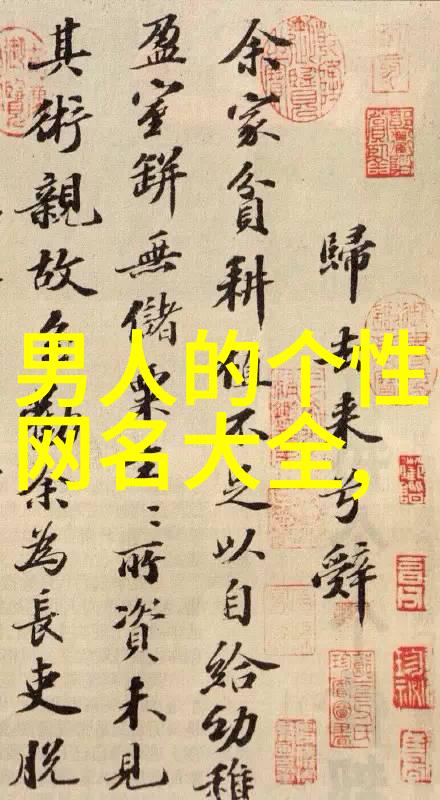 歸去来兮辭
余家貧耕植不足以自給幼稚
盈室缾無儲粟生〻所資未見
其術親故多勸余為長吏脱
男人的个性
网名大全,